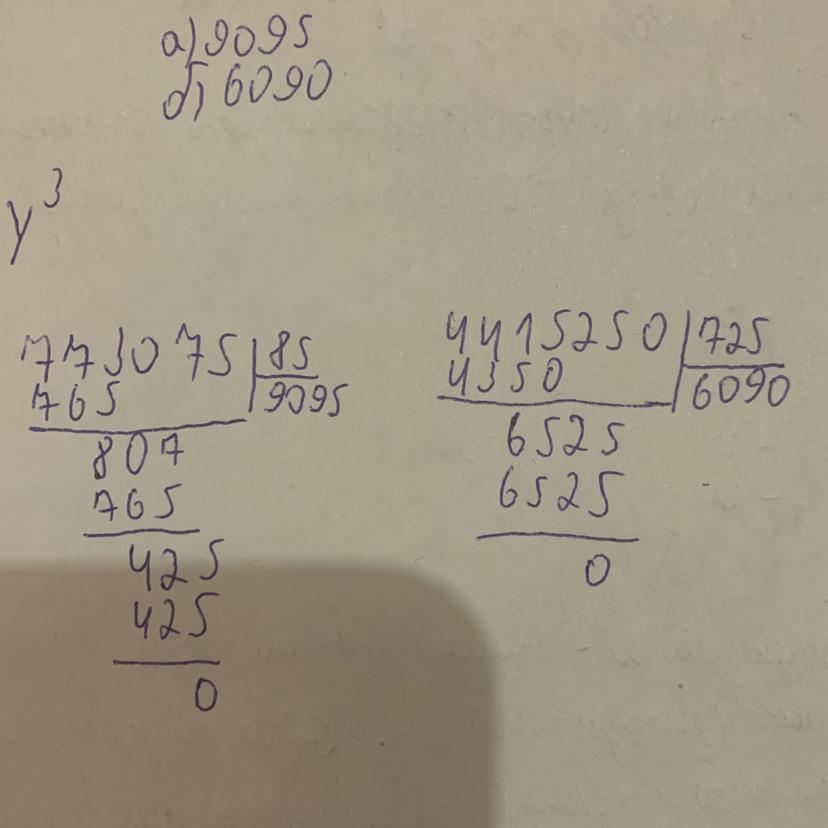 а) 9095
б) 6090
y³
773075 | 85
765 | 9095
807
765
425
425
0
4415250 | 725
4350 | 6090
6525
6525
0